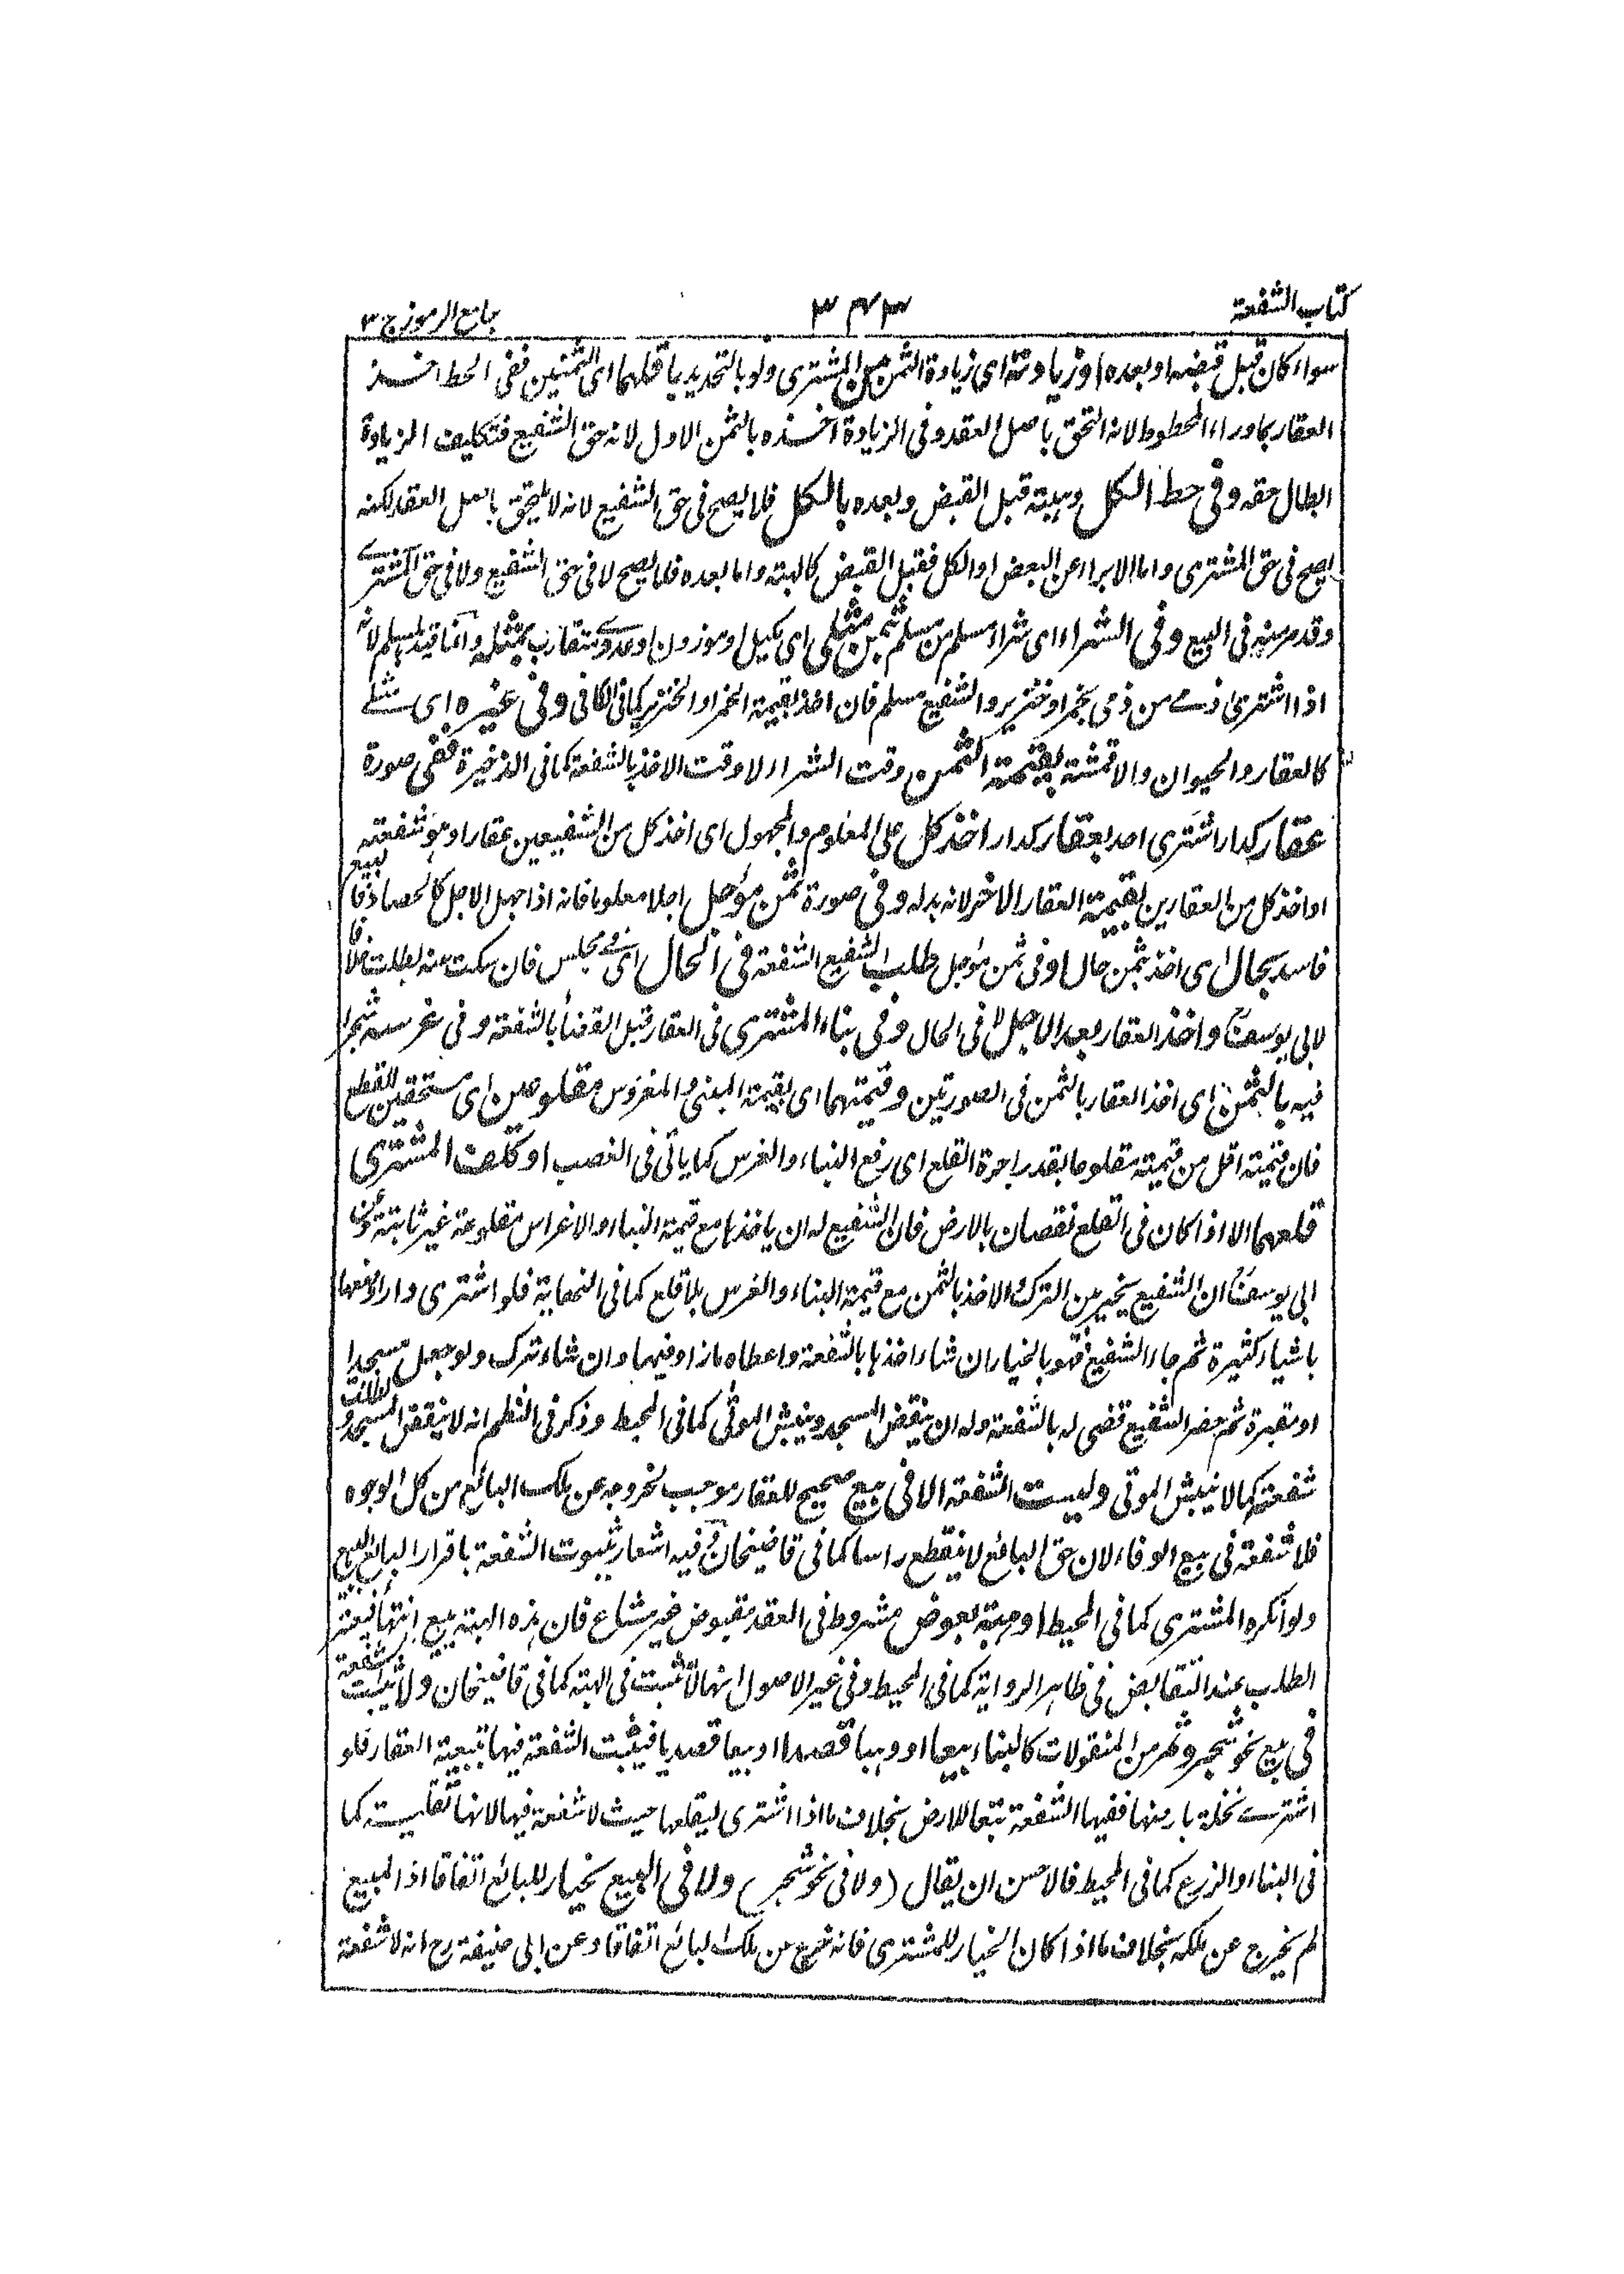 كتاب الشفعة ٣٤٣ جامع الرموز ج ٣
سواء كان قبل قبضه او بعده او زيادته اى زيادة الثمن من المشترى ولو بالتجديد باقلهما اى الثمنين ففى الحط اخذ
العقار بما وراء المحطوط لانه التحق باصل العقد وفى الزيادة اخذه بالثمن الاول لانه حق الشفيع فتكليف الزيادة
ابطال حقه وفى حط الكل وهبته قبل القبض وبعده بالكل فلا يصح فى حق الشفيع لانه لا يلتحق باصل العقد لكنه
يصح فى حق المشترى واما الابراء عن البعض او الكل فقبل القبض كالهبة واما بعده فلا يصح لا فى حق الشفيع ولا فى حق المشترى
وقد مر منه فى البيع وفى الشراء اى شراء مسلم من مسلم بثمن مثلى اى مكيل او موزون او عددى متقارب بمثله وانما قيد بالمسلم لانه
اذا اشترى ذمى من ذمى بخمر او خنزير والشفيع مسلم فان اخذ بقيمة الخمر او الخنزير كما فى الكافى وفى غيره اى مثلى
كالعقار والحيوان والاقمشة بقيمة الثمن وقت الشراء لا وقت الاخذ بالشفعة كما فى الذخيرة ففى صورة
عقار كدار اشترى احد بعقار كدار اخذ كل على المعلوم والمجهول اى اخذ كل من الشفيعين عقارا وهو شفعته
او اخذ كل من العقارين بقيمة العقار الاخر لانه بدله وفى صورة ثمن مؤجل اجلا معلوما فانه اذا جهل الاجل كالحصاد فالبيع
فاسد بحال اى اخذ بثمن حال او فى ثمن مؤجل طلب الشفيع الشفعة فى الحال اى فى مجلس فان سكت عنه بطلت خلافا
لابى يوسف واخذ العقار بعد الاجل لا فى الحال وفى بناء المشترى فى العقار قبل القضاء بالشفعة وفى غرسه شجرا
فيه بالثمن اى اخذ العقار بالثمن فى الصورتين وقيمتهما اى بقيمة المبنى والمغروس مقلوعين اى مستحقين للقطع
فان قيمته اقل من قيمته مقلوعا بقدر اجرة القلع اى رفع البناء والغرس كما ياتى فى الغصب او كلف المشترى
قلعهما الا اذا كان فى القلع نقصان بالارض فان الشفيع له ان ياخذها مع قيمة البناء والاغراس مقلوعة غير ثابتة وعن
ابى يوسف ان الشفيع يخير من الترك والاخذ بالثمن مع قيمة البناء والغرس بلا قلع كما فى النهاية فلو اشترى دارا وصبغها
باشياء كثيرة ثم جاء الشفيع فهو بالخيار ان شاء اخذها بالشفعة واعطاه ما زاد فيها وان شاء ترك ولو جعل مسجدا
او مقبرة ثم حضر الشفيع قضى له بالشفعة وله ان ينقض المسجد وينبش الموتى كما فى المحيط وذكر فى النظم انه لا ينقض المسجد ولطالب
شفعته كما لا ينبش الموتى وليست الشفعة الا فى بيع صحيح للعقار موجب لخروجه عن ملك البائع من كل الوجوه
فلا شفعة فى بيع الوفاء لان حق البائع لا ينقطع راسا كما فى قاضيخان وفيه اشعار بثبوت الشفعة باقرار البائع بالبيع
ولو انكره المشترى كما فى المحيط او هبة بعوض مشروط فى العقد مقبوض غير مشاع فان هذه الهبة بيع انتهاء فيعتبر
الطلب عند التقابض فى ظاهر الرواية كما فى المحيط وفى غير الاصول انها لا تثبت فى الهبة كما فى قاضيخان ولا تثبت شفعة
فى بيع نحو شجر وثمر من المنقولات كالبناء بيعا او وهبا قصدا او بيعا قصديا فيثبت الشفعة فيها تبعية العقار فلو
اشترى نخلة بارضها ففيها الشفعة تبعا للارض بخلاف ما اذا اشترى ليقلعها حيث لا شفعة فيها لانها نقلية كما
فى البناء والزرع كما فى المحيط فالاحسن ان يقال (ولا فى نحو شجر) ولا فى البيع بخيار للبائع اتفاقا اذ المبيع
لم يخرج عن ملكه بخلاف ما اذا كان الخيار للمشترى فانه خرج من ملك البائع اتفاقا وعن ابى حنيفة رح انه لا شفعة